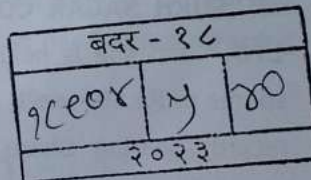 बदर - १८
१८९०४ ५ ४०
२०२३